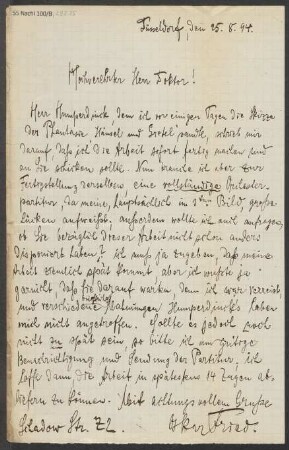 Düsseldorf, den 25. 8. 94.
Hochverehrter Herr Doktor!
Herr Humperdinck, dem ich vor einigen Tagen die Skizze
der Phantasie Hänsel und Gretel sandte, schrieb mir
darauf, daß ich die Arbeit sofort fertig machen und
an Sie schicken sollte. Nun brauche ich aber zur
Fertigstellung derselben eine vollständige Orchester-
partitur, da meine, hauptsächlich im 3ten Bild, große
Lücken aufweist. Außerdem wollte ich mal anfragen,
ob Sie bezüglich dieser Arbeit nicht schon anders
disponiert haben? Ich muß ja zugeben, daß meine
Arbeit ziemlich spät kommt, aber ich wußte ja
gar nicht, daß Sie darauf warten, denn ich war verreist
und verschiedene Mahnungen Humperdinck's haben
mich nicht angetroffen. Sollte es jedoch noch
nicht zu spät sein, so bitte ich um gütige
Benachrichtigung und Sendung der Partitur. Ich
hoffe dann die Arbeit in spätestens 14 Tagen ab-
liefern zu können. Mit achtungsvollem Gruße
Str. 72. Oskar Fried.